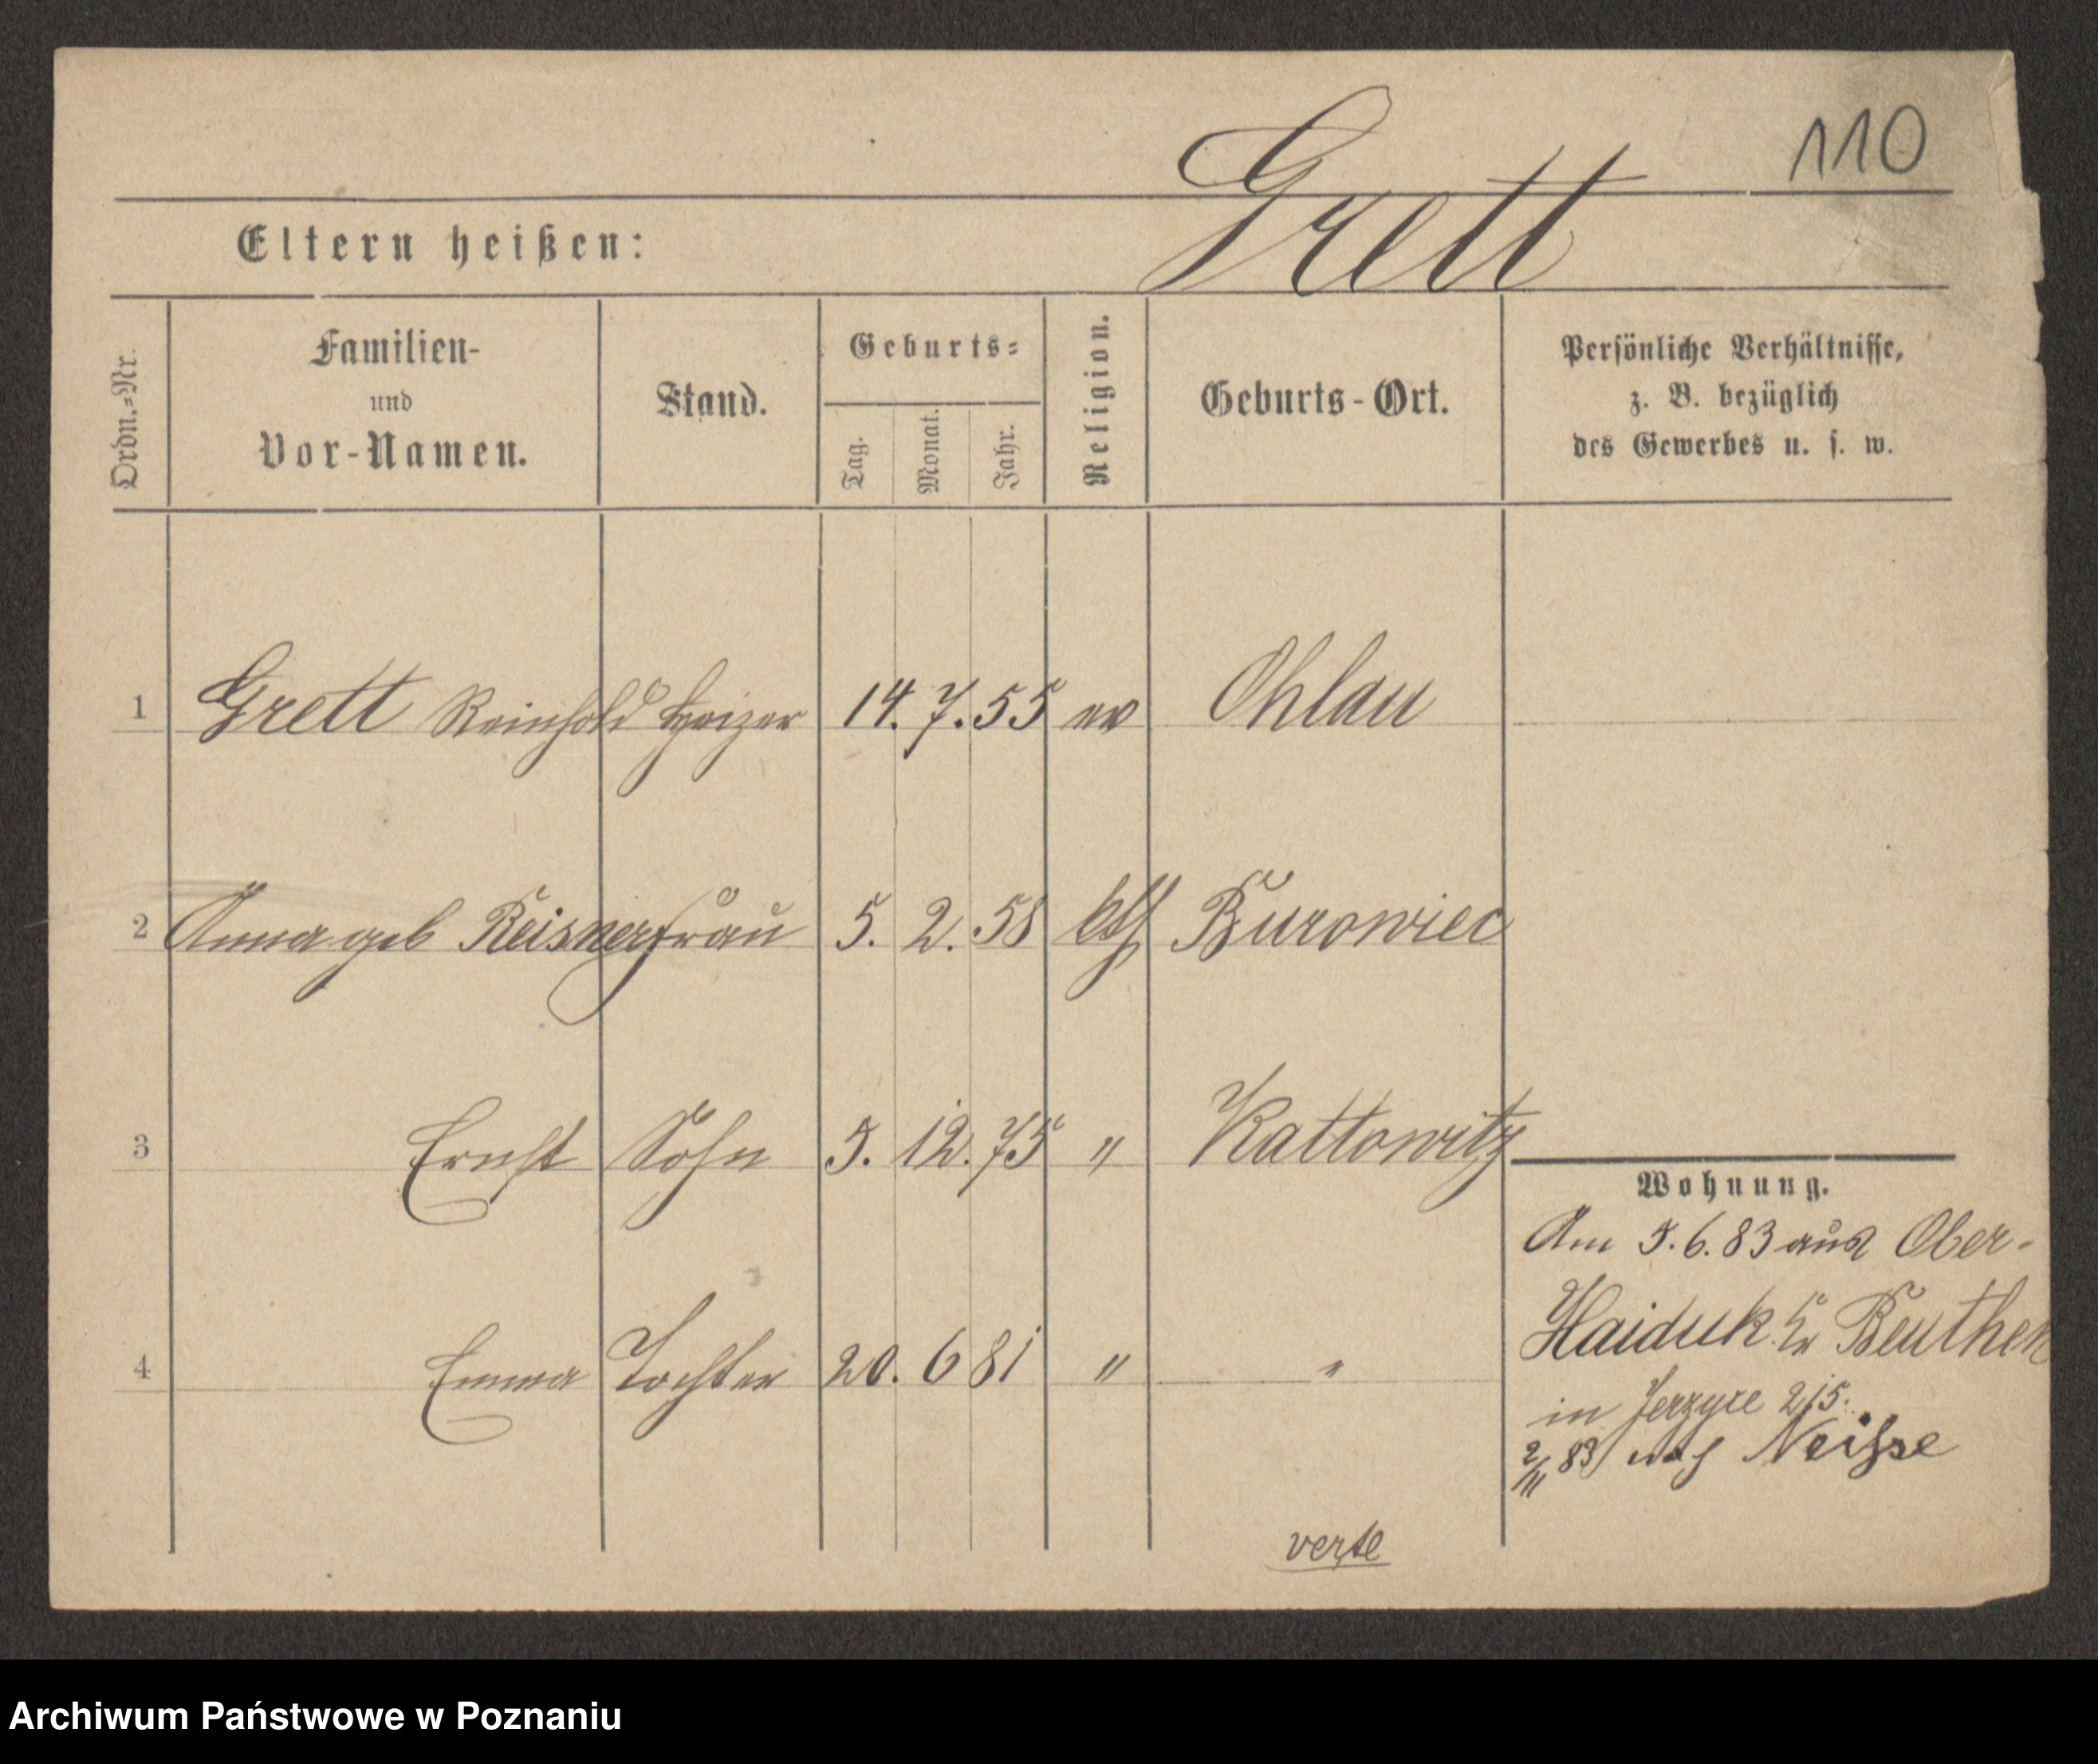 110
Grett
Eltern heißen:
Ordn.-Nr.
Familien-
und
Vor-Namen.
Stand.
Geburts-
Tag.
Monat.
Jahr.
Religion.
Geburts-Ort.
Persönliche Verhältnisse,
z. B. bezüglich
des Gewerbes u. s. w.
1 Grett Reinhold Heizer 14. 7. 55 ev Ohlau
2 Anna geb Reisner Frau 5. 2. 58 kth Burowiec
3 Ernst Sohn 5. 12. 75 " Kattowitz
4 Emma Tochter 20. 6 81 " "
Wohnung.
Am 5. 6. 83 aus Ober-
Haiduk Kr Beuthen
in Jerzyce 215.
2/11 83 nach Neisse
verte
Archiwum Państwowe w Poznaniu